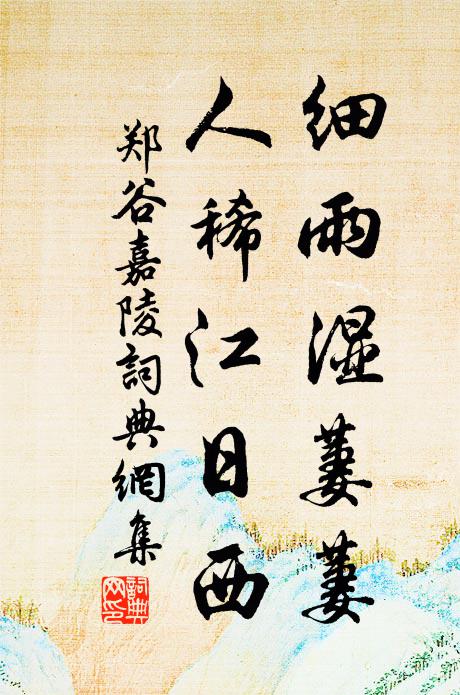 细雨湿萋萋
人稀江日西
郑谷嘉陵詞典網集
詞典
网印